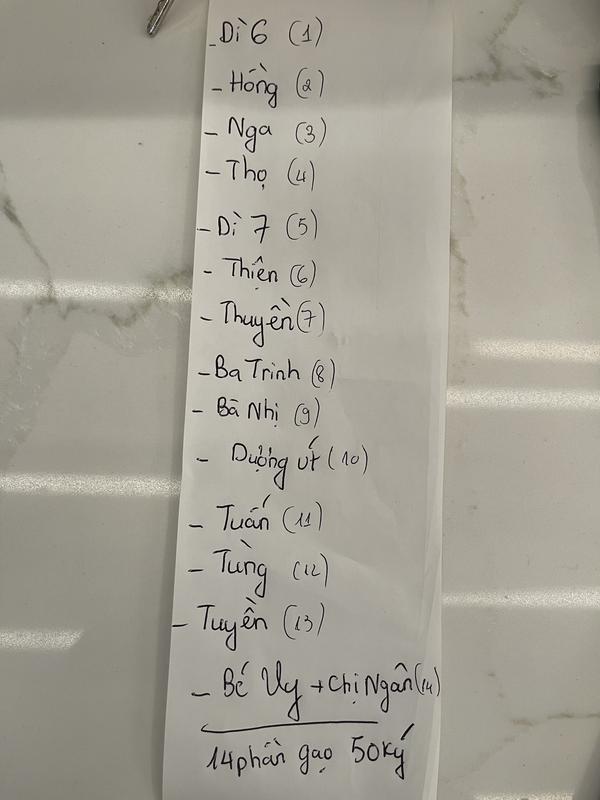 - Dì 6 (1)
- Hồng (2)
- Nga (3)
- Thọ (4)
- Dì 7 (5)
- Thiện (6)
- Thuyền (7)
- Ba Trinh (8)
- Bà Nhị (9)
- Dượng út (10)
- Tuấn (11)
- Tùng (12)
- Tuyền (13)
- Bé Vy + Chị Ngân (14)
14 phần gạo 50 ký